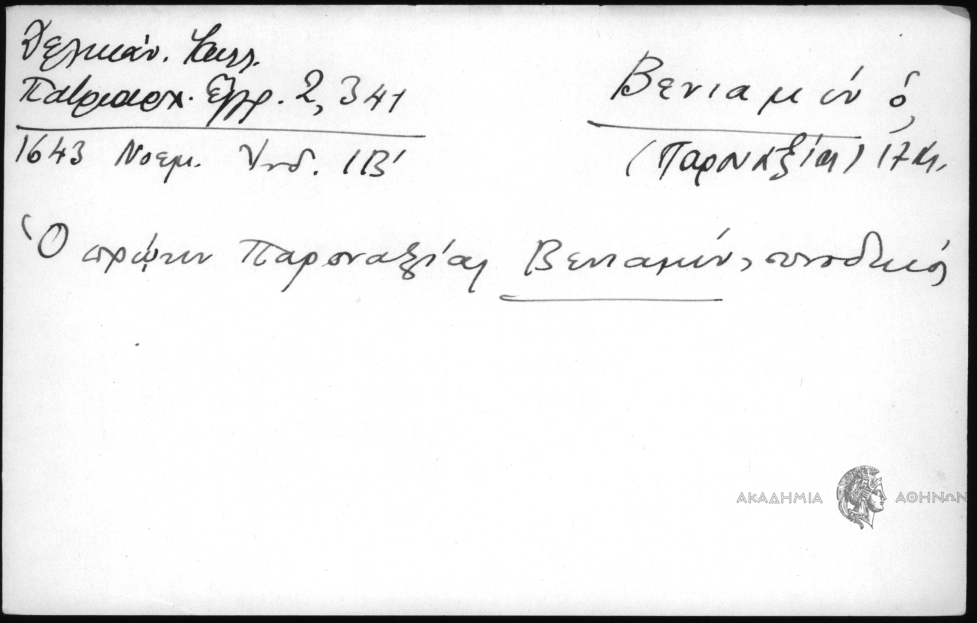 Δελικάν. Καλλ.
Πατριαρχ. Εγγρ. 2, 341
1643 Νοεμ. Ἰνδ. ΙΒ'
Βενιαμίν ὁ
(Παροναξίας) 17 αι.
Ὁ πρώην Παροναξίας Βενιαμίν, συνοδικός
ΑΚΑΔΗΜΙΑ ΑΘΗΝΩΝ